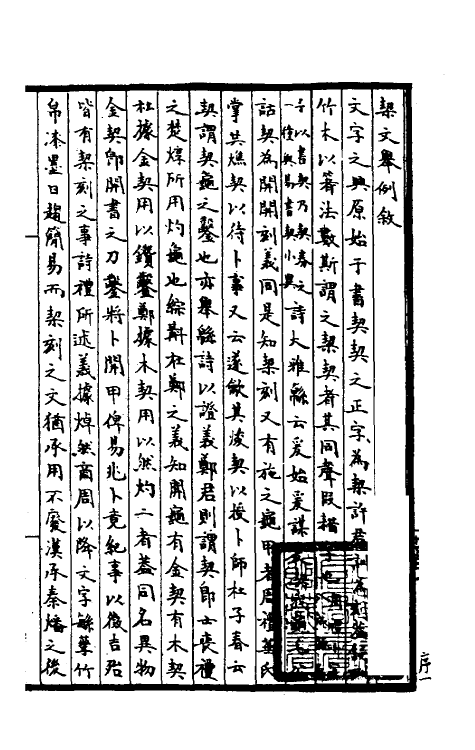 栔文舉例敘
文字之興原始于書契契之正字為栔許君訓為刻
竹木以箸法數斯謂之栔契者其同聲叚借字也
予以書契乃契券之
一後與易書契小異
詩大雅緜云爰始爰謀
詁契為開開刻義同是知栔刻又有施之龜甲者周禮菙氏
掌共燋契以待卜事又云遂龡其焌契以授卜師杜子春云
契謂契龜之鑿也亦舉緜詩以證義鄭君則謂契即士喪禮
之楚焞所用灼龜也綜斠杜鄭之義知開龜有金契有木契
杜據金契用以鑽鑿鄭據木契用以然灼二者蓋同名異物
金契即開書之刀鑿將卜開甲俾易兆卜竟紀事以徵吉咎
皆有栔刻之事詩禮所述義據焯然商周以降文字緐孳竹
帛漆墨日趨簡易而栔刻之文猶承用不廢漢承秦燔之後
序一